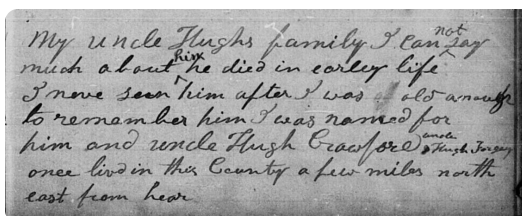 My uncle Hughs family I can not say
much about him he died in earley life
I neve seen him after I was old anough
to remember him I was named for
him and uncle Hugh Crawford uncle Hugh
once livd in this County a few miles north
east from hear